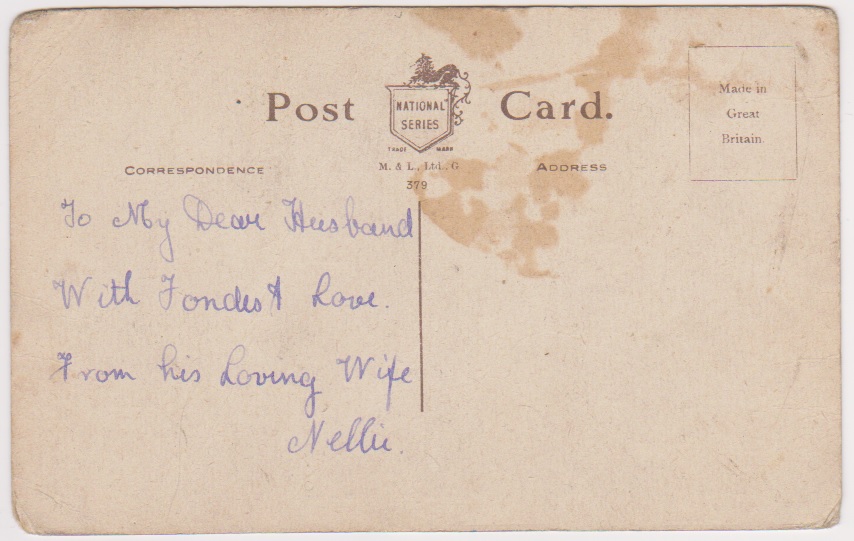 Post Card.
NATIONAL
SERIES
TRADE MARK
M. & L., Ltd., G
379
Made in
Great
Britain.
CORRESPONDENCE
ADDRESS
To My Dear Husband
With Fondest Love.
From his Loving Wife
Nellie.